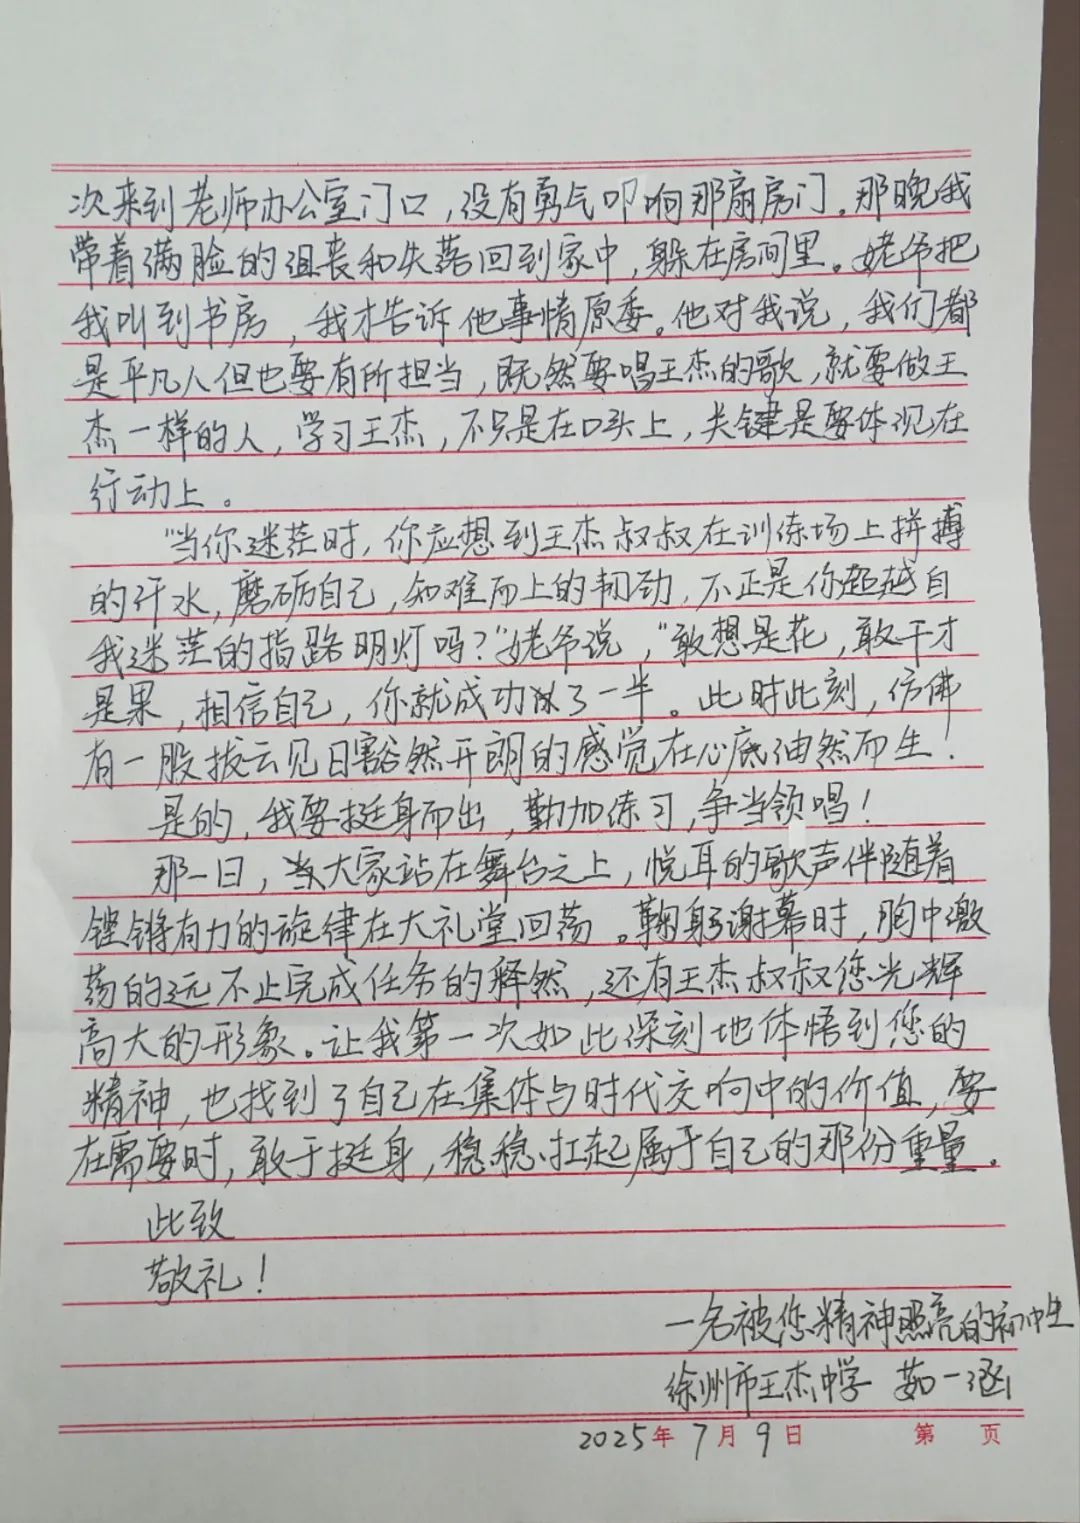 次来到老师办公室门口，没有勇气叩响那扇房门。那晚我
带着满脸的沮丧和失落回到家中，躲在房间里。姥爷把
我叫到书房，我才告诉他事情原委。他对我说，我们都
是平凡人但也要有所担当，既然要唱王杰的歌，就要做王
杰一样的人，学习王杰，不只是在口头上，关键是要体现在
行动上。
“当你迷茫时，你应想到王杰叔叔在训练场上拼搏
的汗水，磨砺自己，知难而上的韧劲，不正是你超越自
我迷茫的指路明灯吗？”姥爷说，“敢想是花，敢干才
是果，相信自己，你就成功了一半。此时此刻，仿佛
有一股拔云见日豁然开朗的感觉在心底油然而生！
是的，我要挺身而出，勤加练习，争当领唱！
那一日，当大家站在舞台之上，悦耳的歌声伴随着
铿锵有力的旋律在大礼堂回荡。鞠躬谢幕时，胸中激
荡的远不止完成任务的释然，还有王杰叔叔您光辉
高大的形象。让我第一次如此深刻地体悟到您的
精神，也找到了自己在集体与时代交响中的价值，要
在需要时，敢于挺身，稳稳扛起属于自己的那份重量。
此致
敬礼！
一名被您精神照亮的初中生
徐州市王杰中学 茹一涵
2025年7月9日 第 页